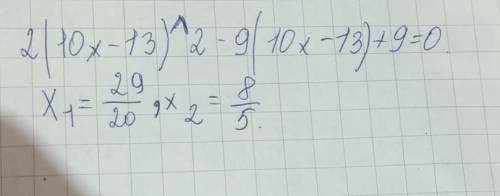 2(10x-13)^2-9(10x-13)+9=0
x₁=29/20, x₂=8/5.